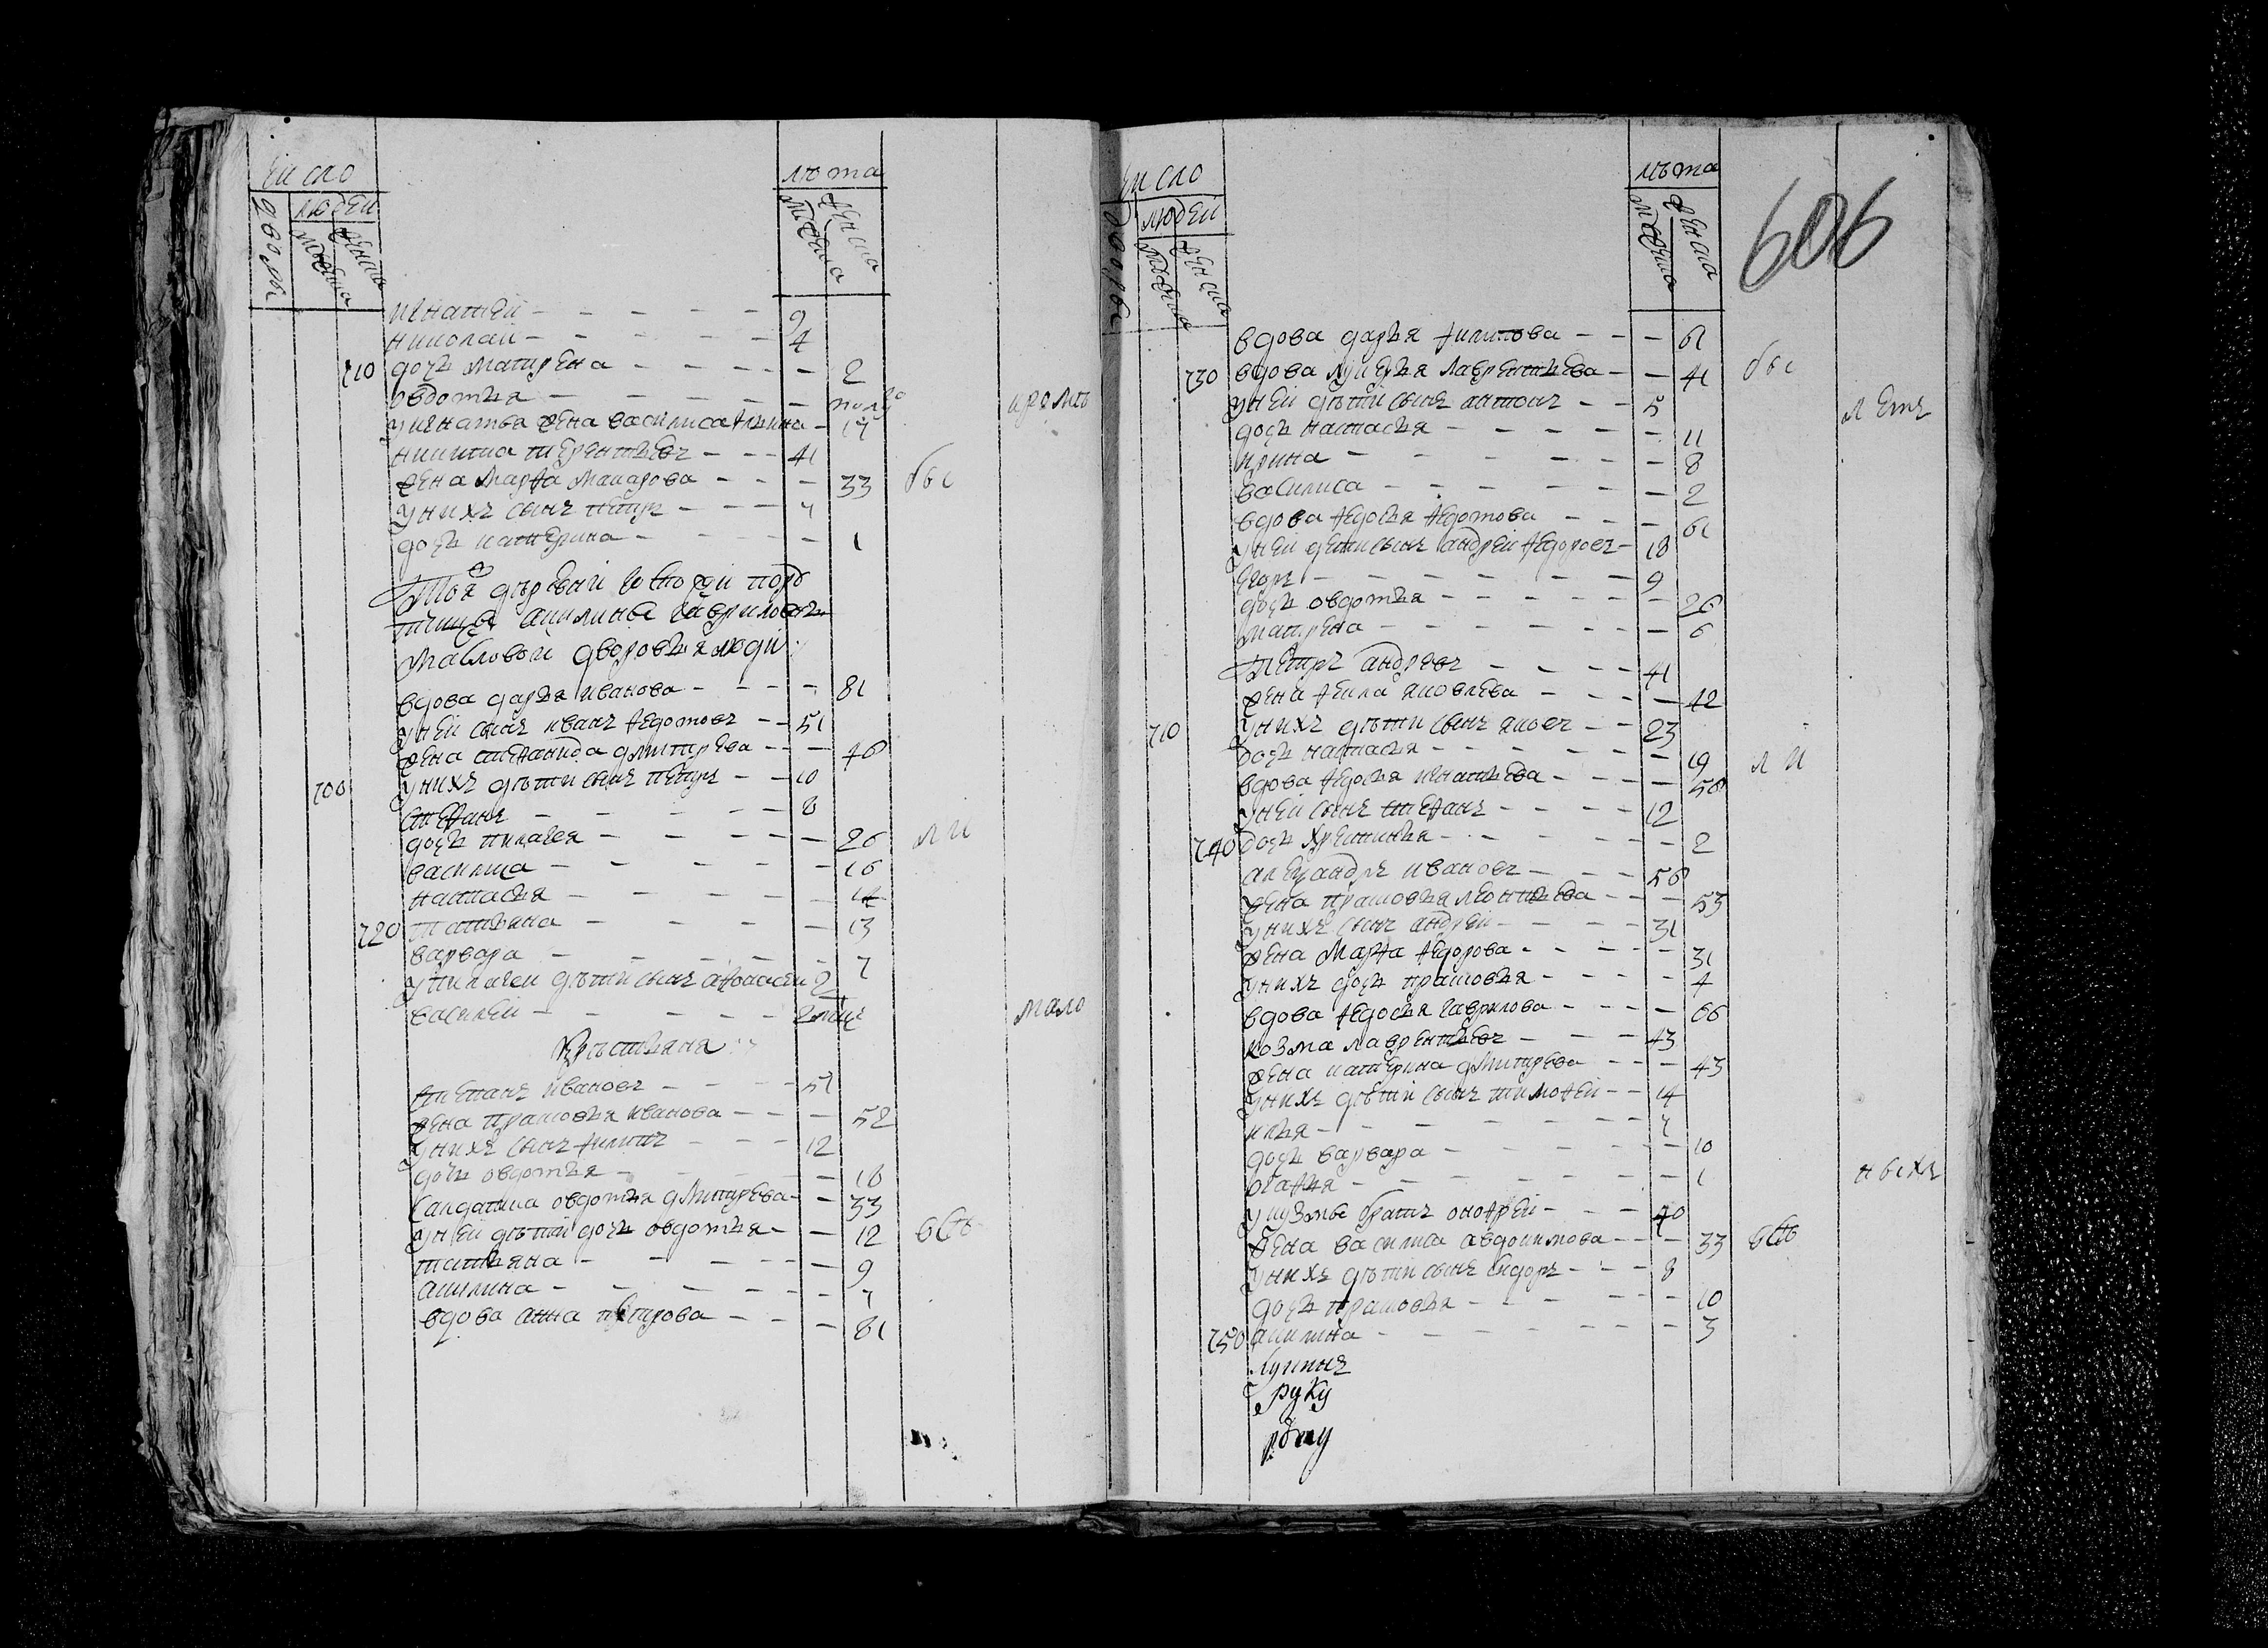 число
людей
дворъ
мужеска
женска
лѣта
мужеска
женска
игнатей - - - - - 9
николай - - - - - 4
710 дочь матрена - - - - - 2
овдотья - - - - - полу
кромѣ
у игнатья жена василиса - 17
никита терентьевъ - - - 41
жена марфа макарова - - - 33 бы
у нихъ сынъ петръ - - - 7
дочь катерина - - - - - 1
Тоя деревни госпожи
акилины гавриловны
масловой дворовыя люди
вдова дарья иванова - - - - 81
у ней сынъ иванъ федотовъ - - 51
жена степанида дмитрева - - - 46
700 у нихъ дѣти сынъ петръ - - 10
степанъ - - - - - 8
дочь пилагея - - - - - 26 ли
василиса - - - - - 16
настасья - - - - - 14
720 татьяна - - - - - 13
варвара - - - - - 7
у пилагеи дѣти сынъ афонасей 2
василей - - - - - 2
мало
Крѣстьяня
степанъ ивановъ - - - - 51
жена прасковья иванова - - - 52
у нихъ сынъ филипъ - - - 12
дочь овдотья - - - - - 18
салдатка овдотья дмитрева - - 33
у ней дѣти дочь овдотья - - 12 всѣ
татьяна - - - - - 9
акилина - - - - - 7
вдова анна петрова - - - 81
606
число
людей
дворъ
мужеска
женска
лѣта
мужеска
женска
вдова дарья филипова - - - 61
730 вдова лукерья лаврентьева - - 41 бы
у ней дѣти сынъ антонъ - - 5
летъ
дочь настасья - - - - - 11
ирина - - - - - - 8
василиса - - - - - - 2
вдова федосья федотова - - - 61
у ней дети сынъ андрей федоровъ - 18
егоръ - - - - - - 9
дочь овдотья - - - - - 26
матрена - - - - - - 6
петръ андревъ - - - - 41
жена фекла яковлева - - - - 42
710 у нихъ дѣти сынъ яковъ - - 23
дочь настасья - - - - - 19 ли
вдова федосья игнатьева - - - - 58
у ней сынъ степанъ - - - - 12
740 дочь хрестинья - - - - - 2
александръ ивановъ - - - 56
жена прасковья леонтьева - - - 53
у нихъ сынъ андрей - - - - 31
жена марфа федорова - - - - 31
у нихъ дочь прасковья - - - - 4
вдова федосья гаврилова - - - - 66
козма лаврентьевъ - - - 43
жена катерина дмитрева - - - 43
у нихъ дѣти сынъ тимофей - - 14
илья - - - - - - 7
дочь варвара - - - - - 10
агафья - - - - - - 1
ныхъ
у кузмы братъ онофрей - - - 40
жена василиса авдокимова - - - 33 всѣ
у нихъ дѣти сынъ сидоръ - - - 8
дочь прасковья - - - - - 10
750 акилина - - - - - - 3
руку